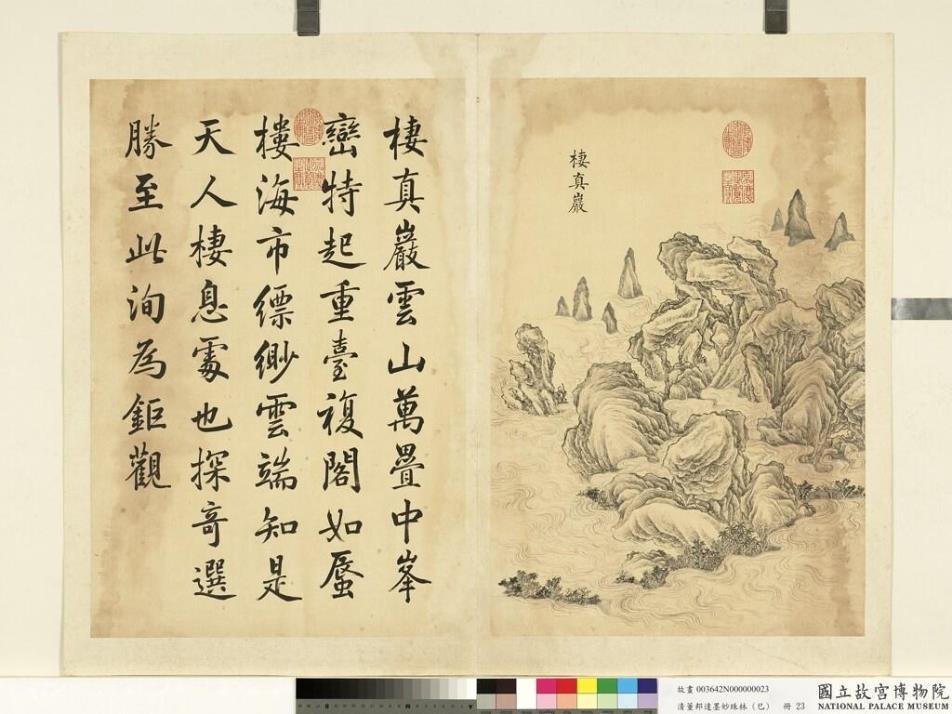 棲真巖
棲真巖雲山萬疊中峯
巒特起重臺複閣如蜃
樓海市縹緲雲端知是
天人棲息處也探奇選
勝至此洵為鉅觀
故畫 003642N000000023
清董邦達墨妙珠林(巳) 冊 23
國立故宮博物院
NATIONAL PALACE MUSEUM